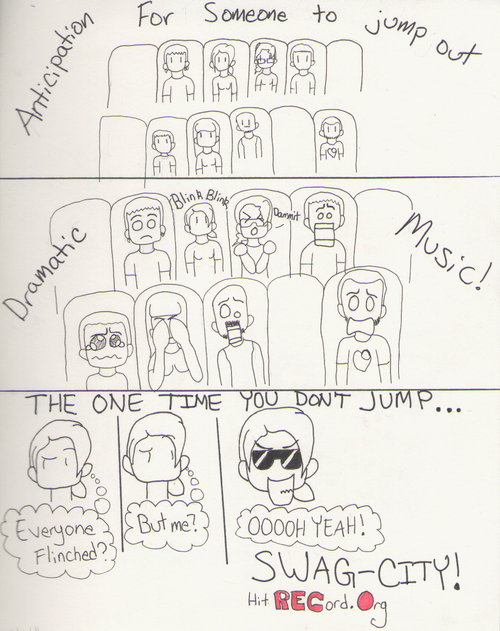 Anticipation For Someone to jump out
Blink Blink
Dammit
Dramatic Music!
THE ONE TIME YOU DON'T JUMP...
Everyone
Flinched?
But me?
OOOOH YEAH!
SWAG-CITY!
Hit RECord.Org